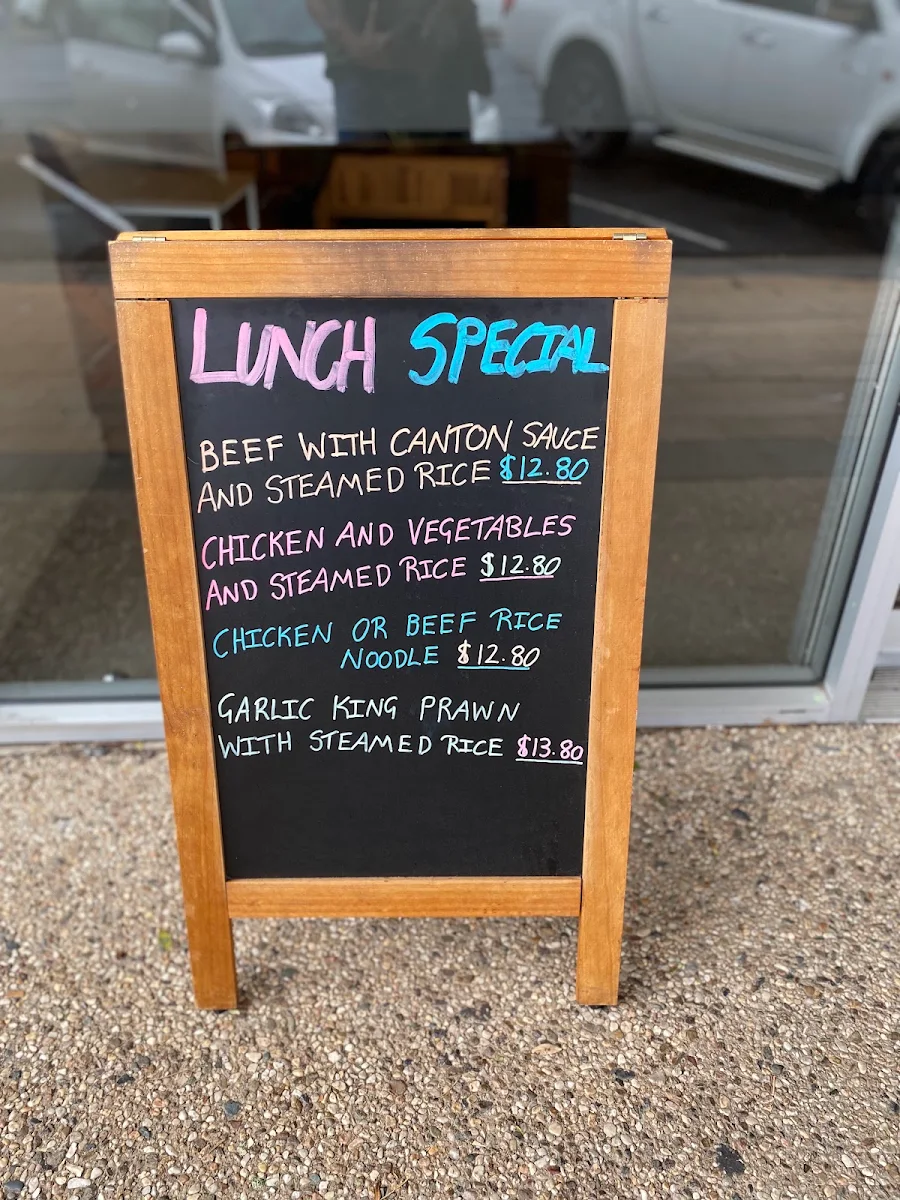 LUNCH SPECIAL
BEEF WITH CANTON SAUCE
AND STEAMED RICE $12.80
CHICKEN AND VEGETABLES
AND STEAMED RICE $12.80
CHICKEN OR BEEF RICE
NOODLE $12.80
GARLIC KING PRAWN
WITH STEAMED RICE $13.80